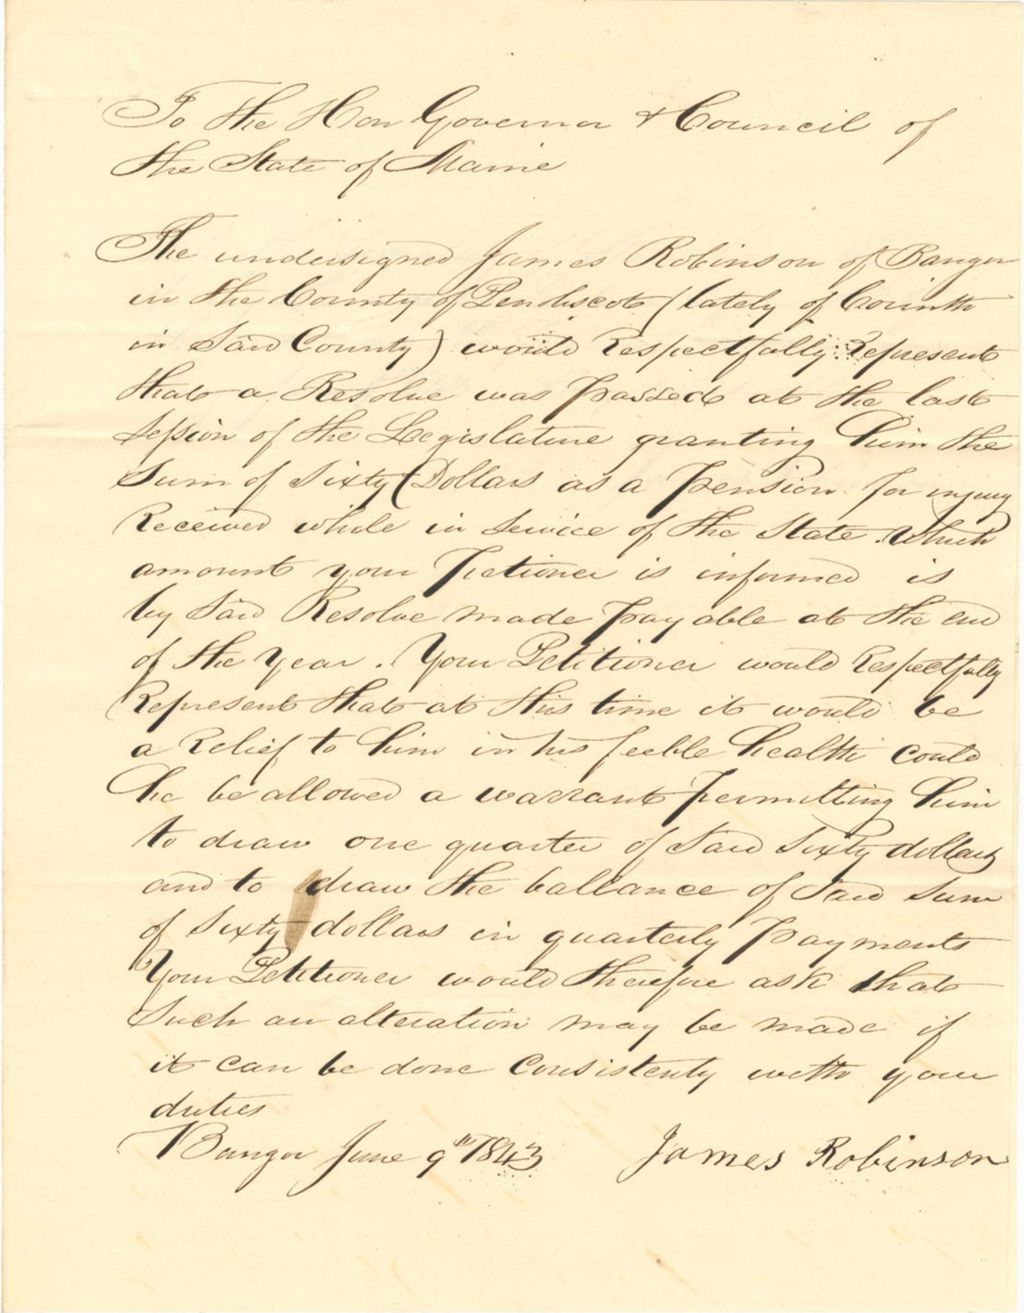 To the Hon Governor & Council of
the State of Maine
The undersigned James Robinson of Bangor
in the County of Penobscot (lately of Corinth
in Said County) would Respectfully Represent
that a Resolve was passed at the last
Session of the Legislature granting him the
Sum of Sixty Dollars as a pension for injury
Received while in Service of the State. Which
amount your Petioner is informed is
by Said Resolve made payable at the end
of the Year. Your Petitioner would Respectfully
Represent that at this time it would be
a Relief to him in his feeble health could
he be allowed a warrant permitting him
to draw one quarter of Said Sixty dollars
and to draw the ballance of Said Sum
of Sixty dollars in quarterly payments
Your Petitioner would therefore ask that
Such an alteration may be made if
it can be done Consistenty with your
duties
Bangor June 9th 1843 James Robinson